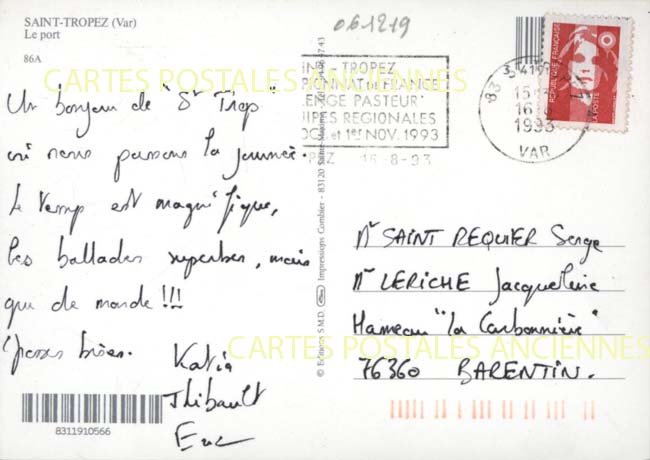 SAINT-TROPEZ (Var)
Le port
86A
061219
CARTES POSTALES ANCIENNES
Un bonjour de "St Trop"
où nous passons la journée.
Le temp est magnifique,
les ballades superbes, mais
que de monde !!!
Grosses bises.
Katia
Thibault
Eric
8311910566
- TROPEZ
PIONNAT DE FRANCE
LENGE PASTEUR"
UIPES REGIONALES
OC. et 1er NOV. 1993
PEZ 16-8-93
83
16
1993
VAR
REPUBLIQUE FRANÇAISE
LA POSTE
© Editions S.M.D. Impressions Combier - 83120 Sainte-Maxime
Mr SAINT REQUIER Serge
Me LERICHE Jacqueline
Hameau "la Carbonnière"
76360 BARENTIN.
CARTES POSTALES ANCIENNES